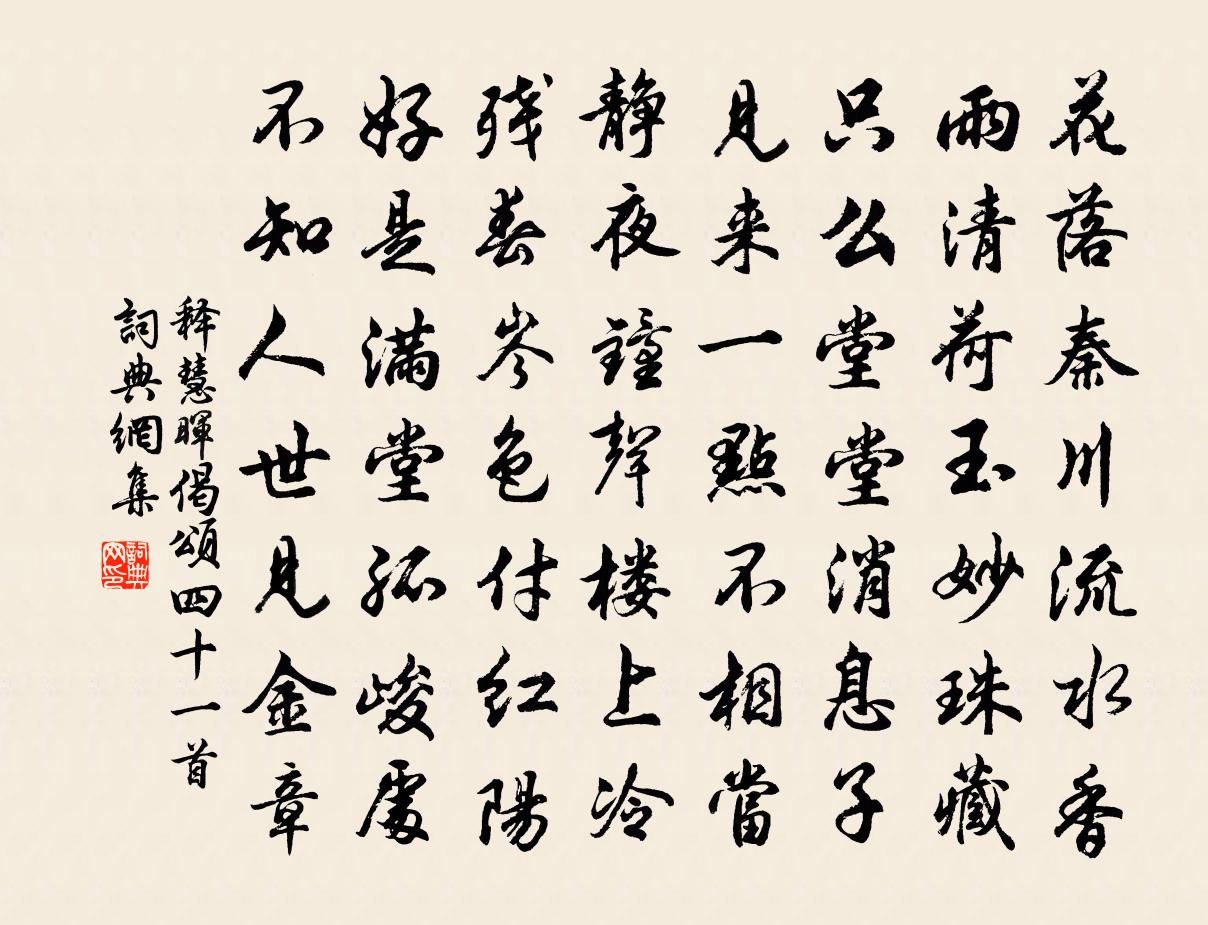 花落秦川流水香
雨清荷玉妙珠藏
只么堂堂消息子
见来一點不相當
静夜鐘聲楼上冷
残春岑色付红陽
好是满堂孤峻處
不知人世见金章
释慧暉偈頌四十一首
詞典網集
詞典网印